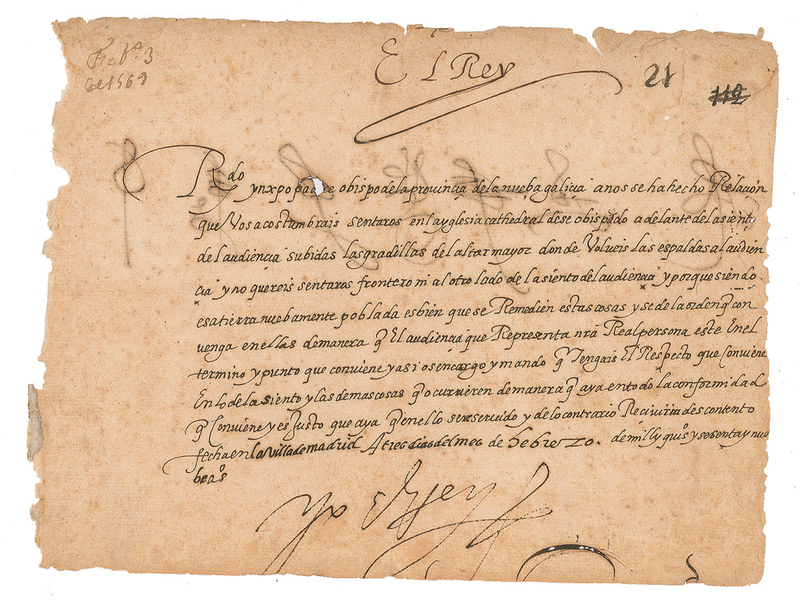 Feb.º 3
de 1569
El Rey
21
112
Rdo ynxpo padre obispo de la provincia de la nueba galicia a nos se ha hecho Relacion
que Vos acostumbrais sentaros en la yglesia cathedral dese obispado adelante del asiento
de l audiencia subidas las gradillas del altar mayor donde Volveis las espaldas al audien
cia y no quereis sentaros frontero ni al otro lado de l asiento del audiencia y porque siendo
esa tierra nuebamente poblada es bien que se Remedien estas cosas y se de la orden q con
venga en ellas de manera q El audiencia que Representa nrã Real persona este En el
termino y punto que conviene y asi os encargo y mando q Tengais El Respecto que Conviene
En lo del asiento y las demas cosas q ocurrieren de manera q aya en todo la conformidad
q Conviene y es Justo que aya q en ello sere servido y de lo contrario Reciviria descontento
fecha en la villa de madrid A tres dias del mes de hebrero. de mill y quiºs y sesenta y nue
be aºs
yo el Rey